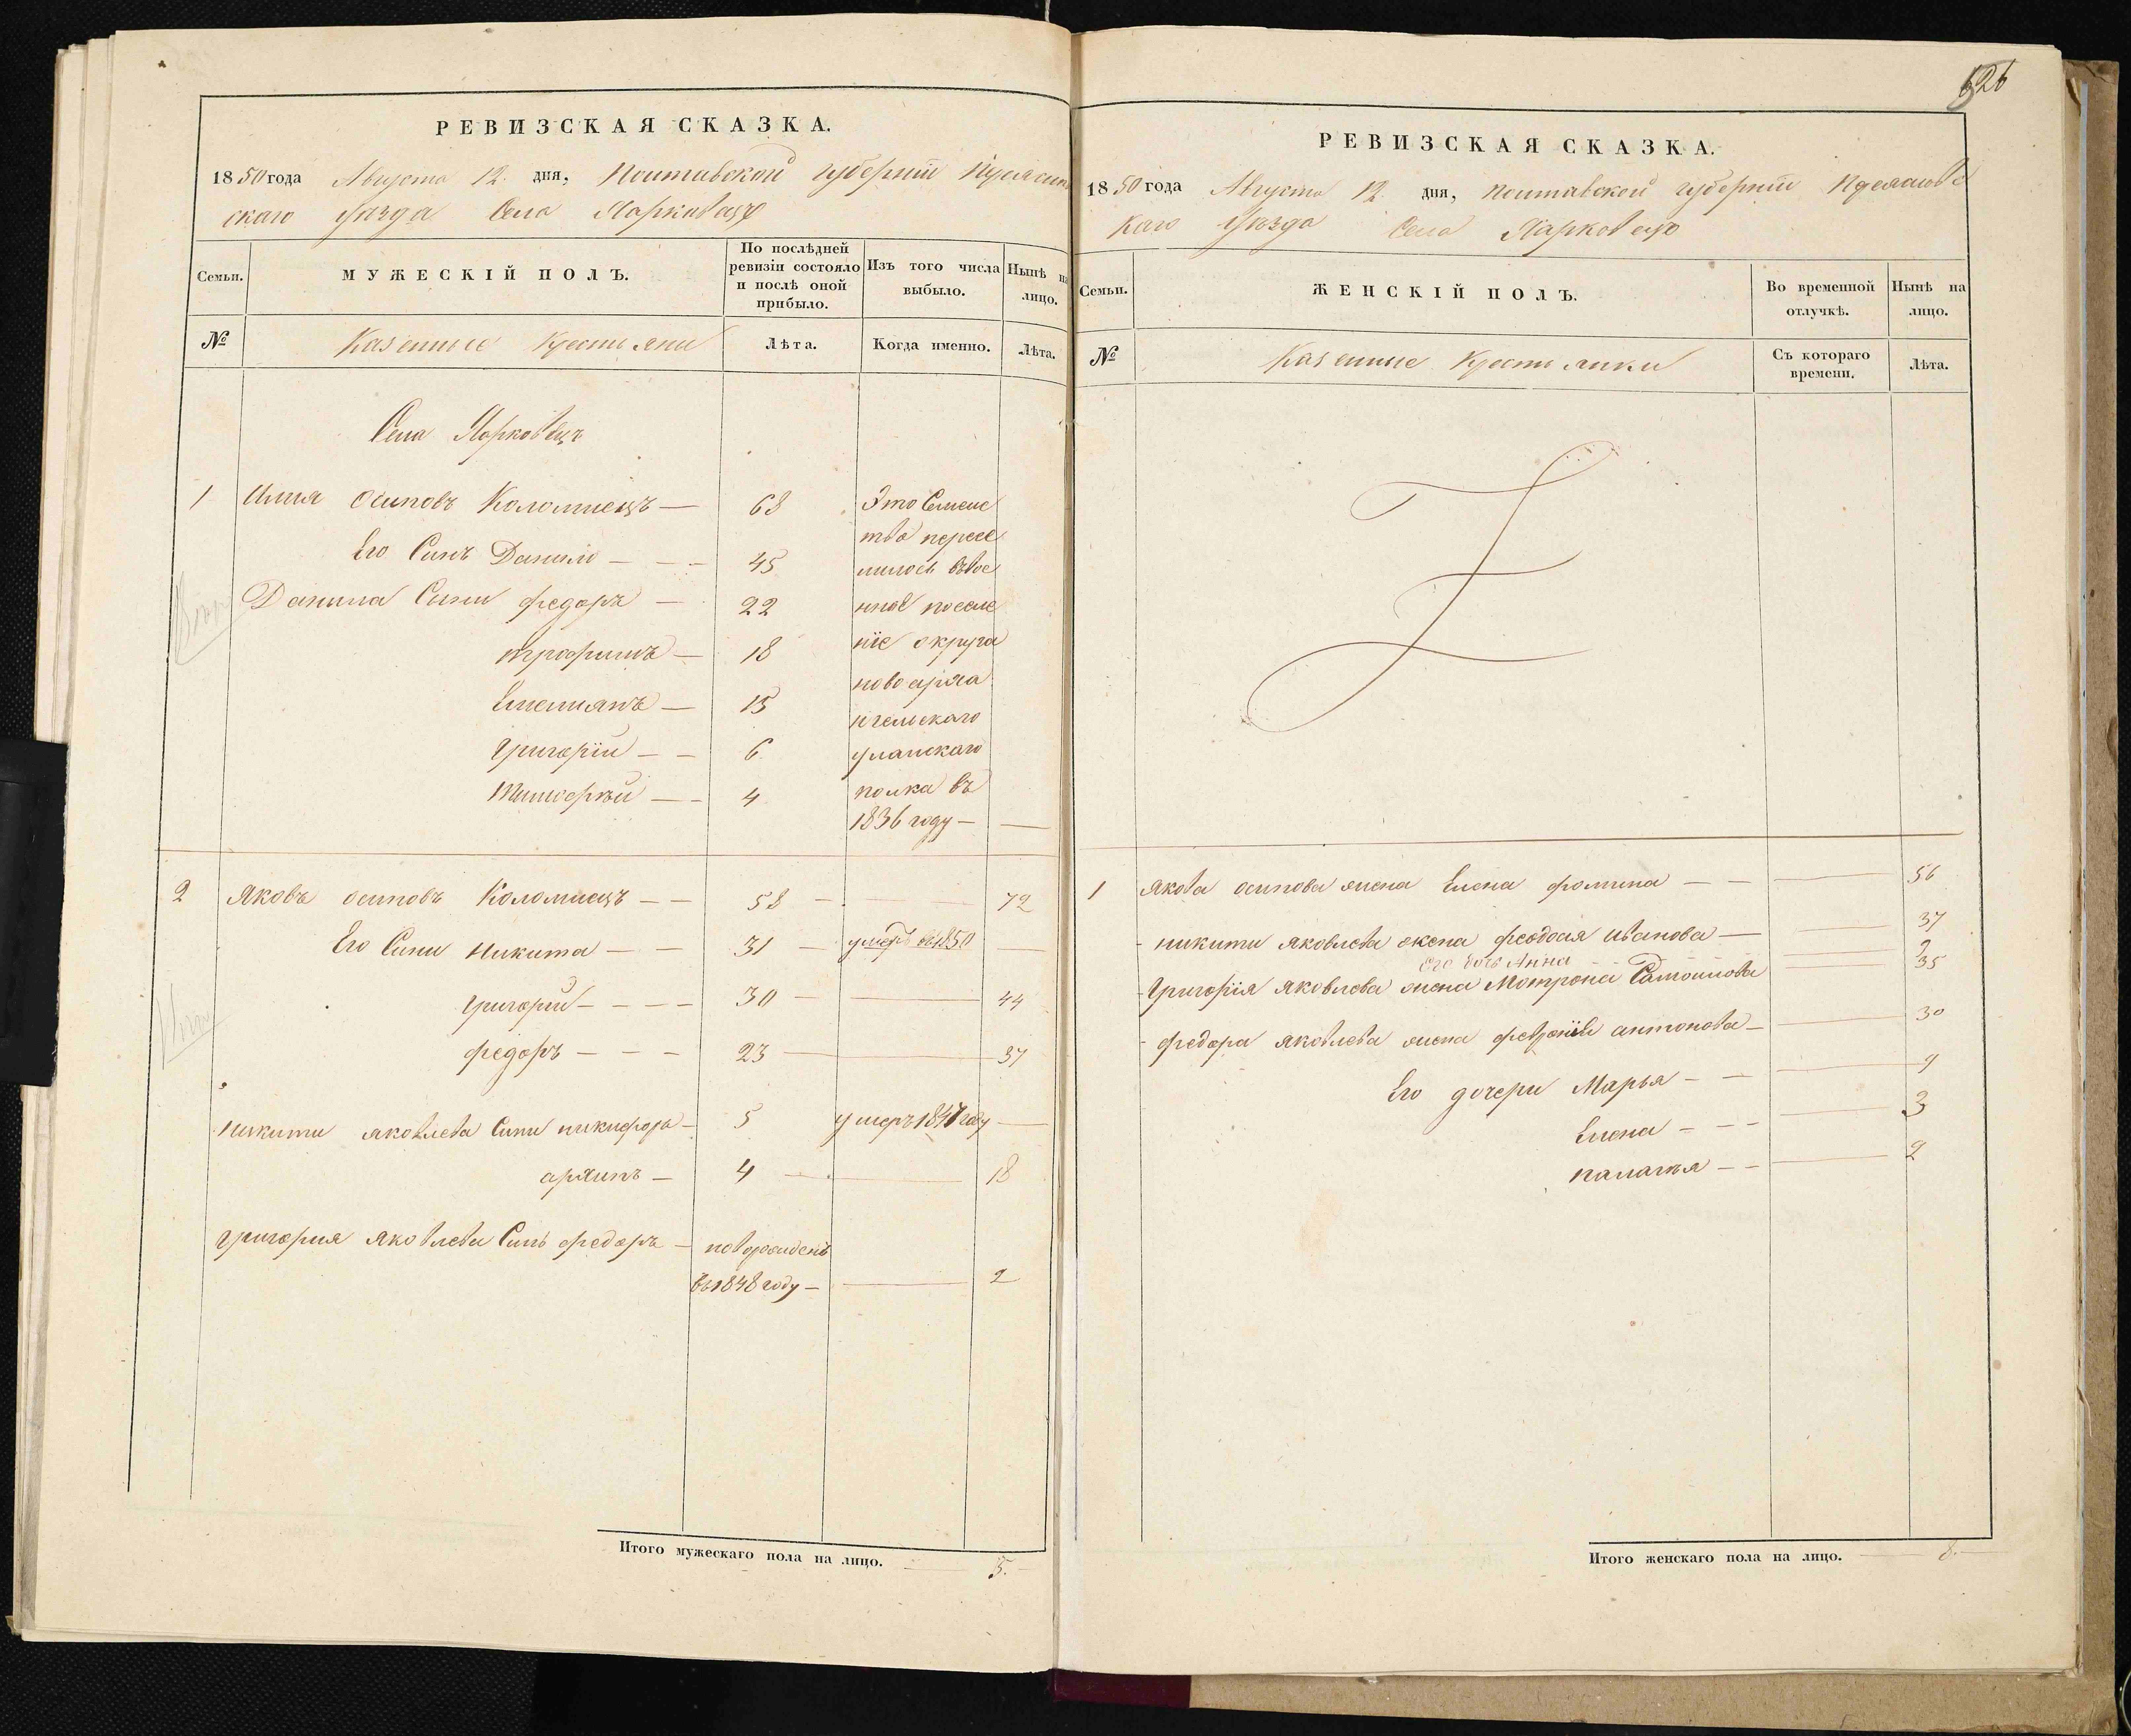 626
РЕВИЗСКАЯ СКАЗКА.
1850 года Августа 12 дня, Полтавской губерніи Переяслав
скаго уѣзда Села Ярковецъ
Семьи.
МУЖЕСКІЙ ПОЛЪ.
По послѣдней
ревизіи состояло
и послѣ оной
прибыло.
Изъ того числа
выбыло.
Нынѣ на
лицо.
№
Казенные Крестьяни
Лѣта.
Когда именно.
Лѣта.
Села Ярковецъ
1 Илия осиповъ Коломиецъ — 68
Его Синъ Данило — — — 45
Данила Сыни федоръ — 22
трофимъ — 18
Емелиянъ — 15
григорій — — 6
Тимофѣй — — 4
Это Семейс
тво пересе
лилось въвое
нное поселе
ніе округа
новоарха
нгелскаго
уланскаго
полка въ
1836 году — —
2 Яковъ осиповъ Коломиецъ — — 58 — — 72
Его Сини Никита — — 31 — умеръ въ1850 —
григорий — — — — 30 — — 44
федоръ — — — 23 — — 37
никити яковлева Сини никифоръ — 5 умеръ1847году —
архипъ — 4 — — 18
григория яковлева Синъ федоръ — новорожденъ
въ1848году — — 2
Итого мужескаго пола на лицо. — 5.
РЕВИЗСКАЯ СКАЗКА.
1850 года Августа 12 дня, полтавской губерніи Переяславс
каго уѣзда Села Ярковецъ
Семьи.
ЖЕНСКІЙ ПОЛЪ.
Во временной
отлучкѣ.
Нынѣ на
лицо.
№
Казенные Крестьянки
Съ котораго
времени.
Лѣта.
1 якова осипова жена Елена фомина — — — 56
никити яковлева жена феодосия иванова — — 37
Его дочь Анна — 9
григорія яковлева жена Мотрона Самойлова — 35
федора яковлева жена февронія антонова — — 30
Его дочери Марья — — — 9
Елена — — — — 3
палагея — — — 2
Итого женскаго пола на лицо. — 8. —